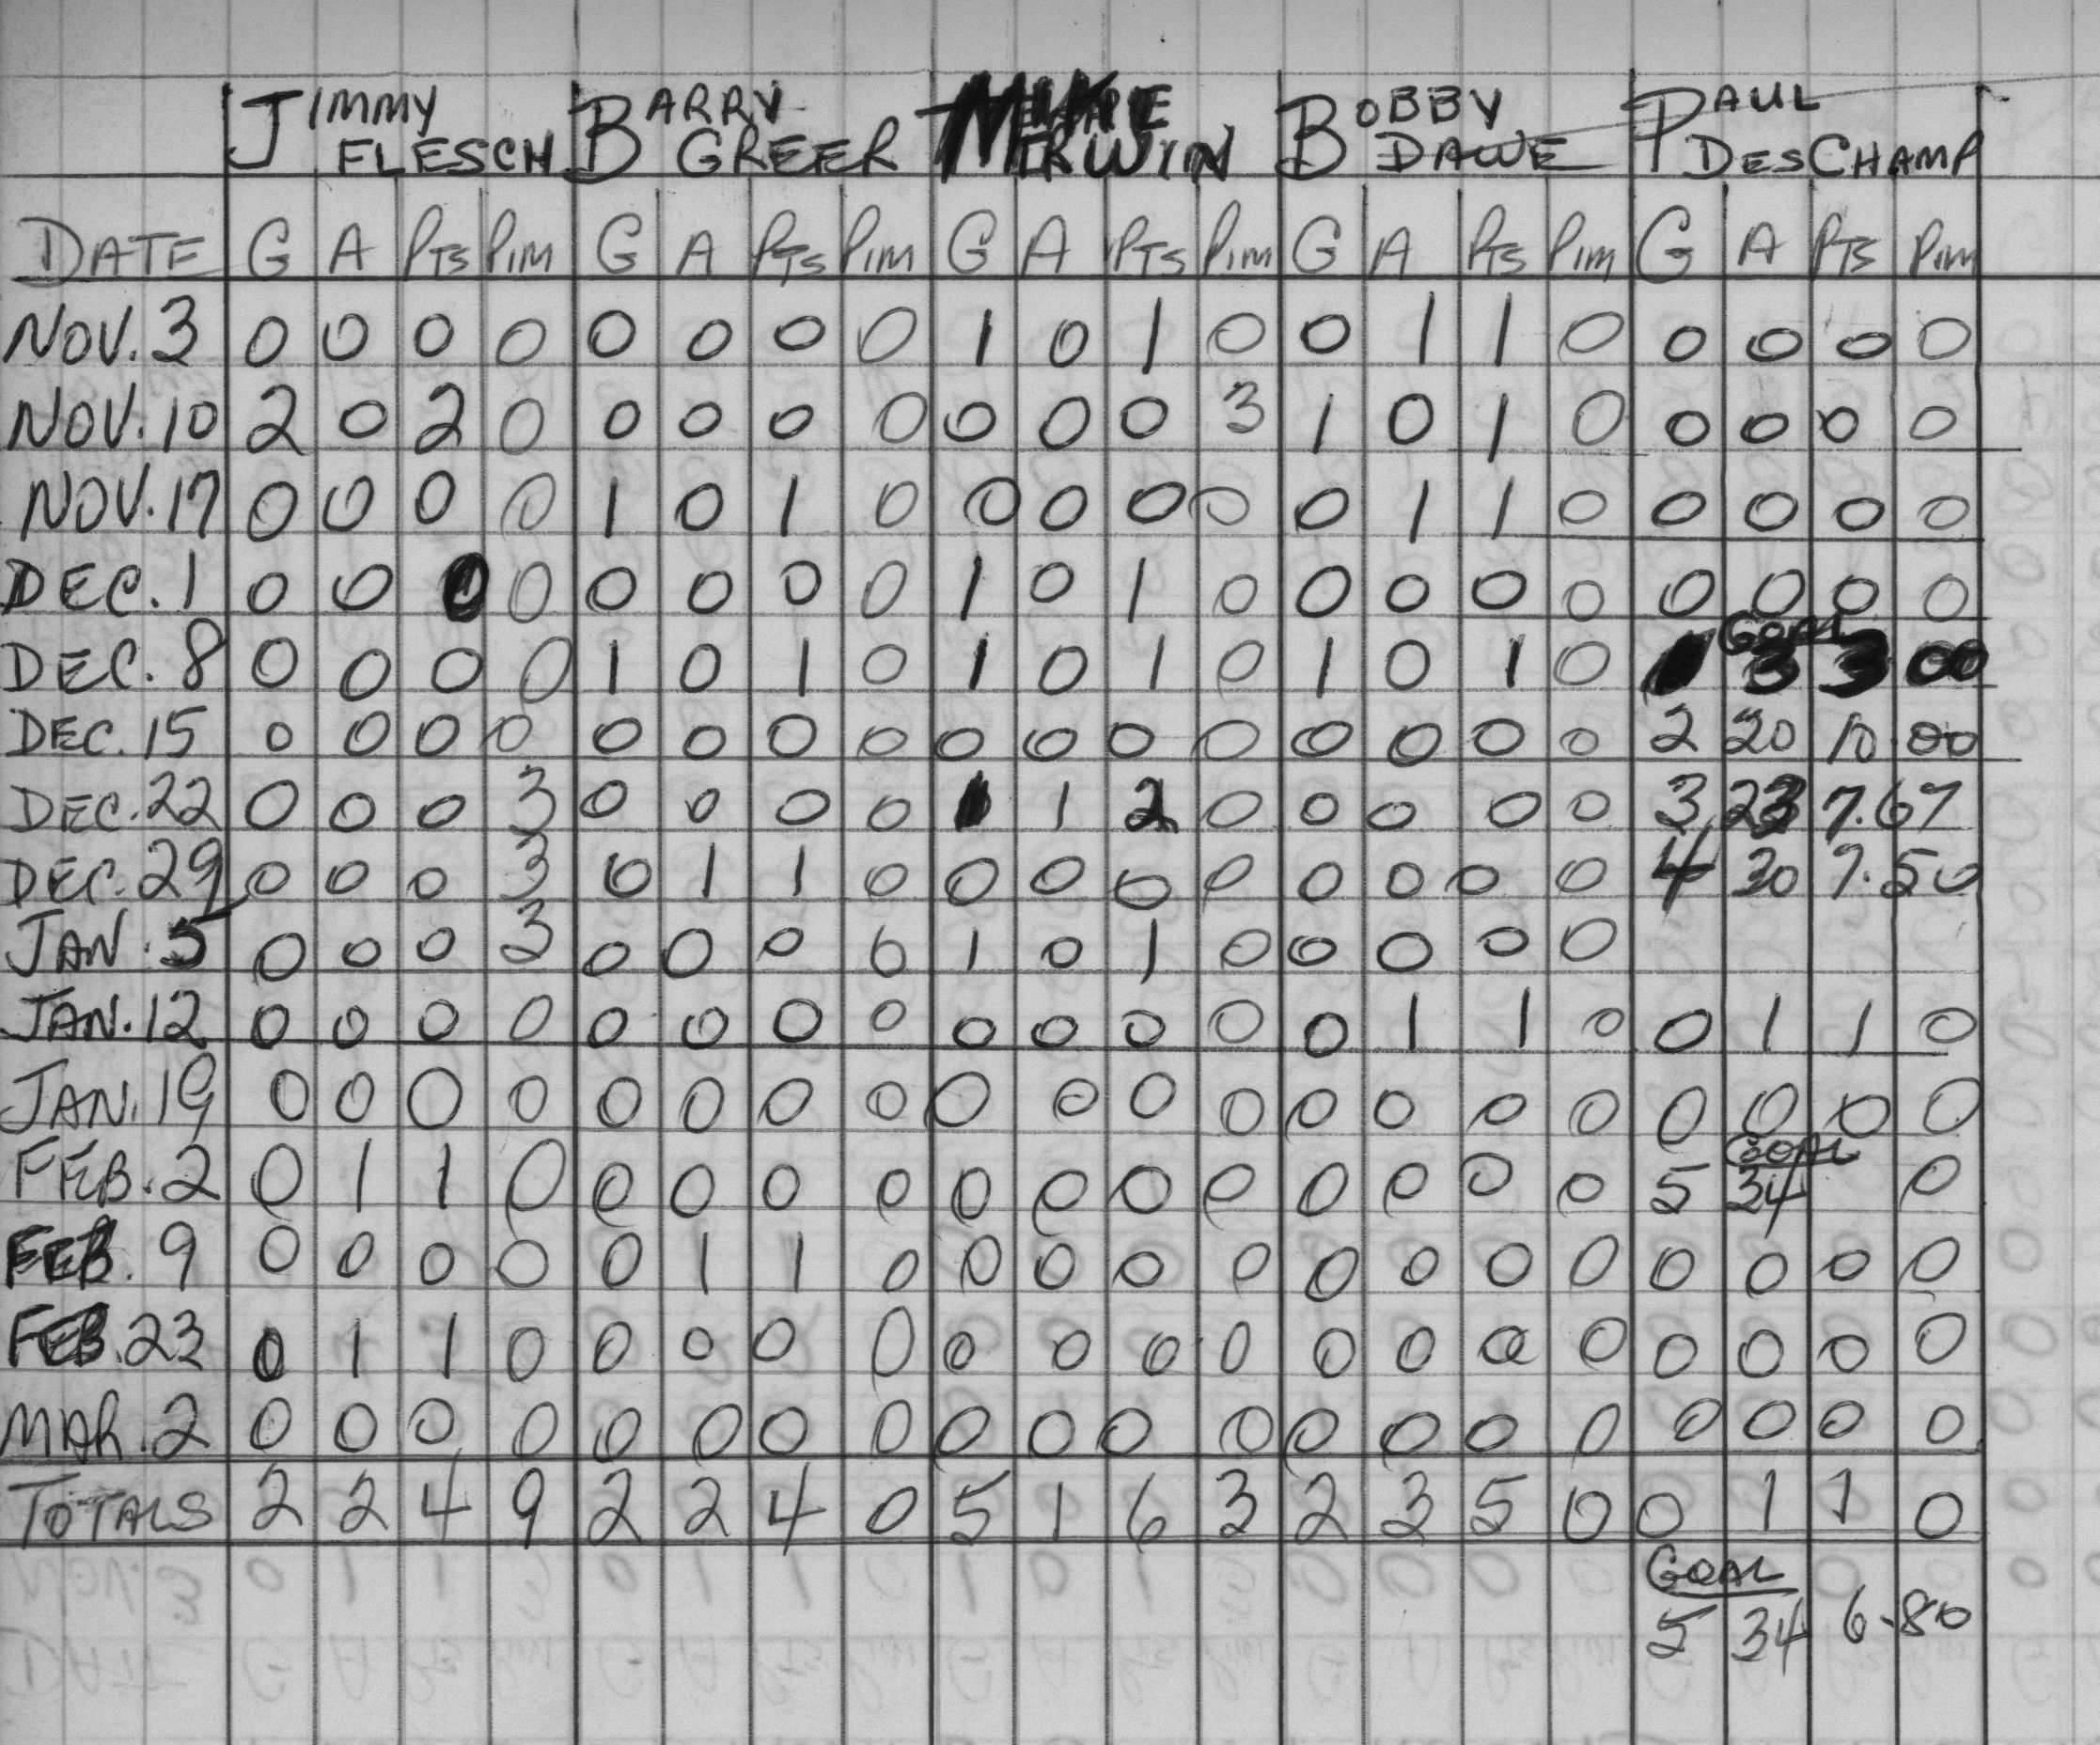 JIMMY FLESCH BARRY GREER MIKE IRWIN BOBBY DAWE PAUL DESCHAMP
DATE G A PTS PIM G A PTS PIM G A PTS PIM G A PTS PIM G A PTS PIM
NOV. 3 0 0 0 0 0 0 0 0 1 0 1 0 0 1 1 0 0 0 0 0
NOV. 10 2 0 2 0 0 0 0 0 0 0 0 3 1 0 1 0 0 0 0 0
NOV. 17 0 0 0 0 1 0 1 0 0 0 0 0 0 1 1 0 0 0 0 0
DEC. 1 0 0 0 0 0 0 0 0 1 0 1 0 0 0 0 0 0 0 0 0
GOAL
DEC. 8 0 0 0 0 1 0 1 0 1 0 1 0 1 0 1 0 1 3 3 00
DEC. 15 0 0 0 0 0 0 0 0 0 0 0 0 0 0 0 0 2 20 10.00
DEC. 22 0 0 0 3 0 0 0 0 1 1 2 0 0 0 0 0 3 23 7.67
DEC. 29 0 0 0 3 0 1 1 0 0 0 0 0 0 0 0 0 4 30 7.50
JAN. 5 0 0 0 3 0 0 0 0 1 0 1 0 0 0 0 0
JAN. 12 0 0 0 0 0 0 0 0 0 0 0 0 0 1 1 0 0 1 1 0
JAN. 19 0 0 0 0 0 0 0 0 0 0 0 0 0 0 0 0 0 0 0 0
GOAL
FEB. 2 0 1 1 0 0 0 0 0 0 0 0 0 0 0 0 0 5 34 0
FEB. 9 0 0 0 0 0 1 1 0 0 0 0 0 0 0 0 0 0 0 0 0
FEB. 23 0 1 1 0 0 0 0 0 0 0 0 0 0 0 0 0 0 0 0 0
MAR. 2 0 0 0 0 0 0 0 0 0 0 0 0 0 0 0 0 0 0 0 0
TOTALS 2 2 4 9 2 2 4 0 5 1 6 3 2 3 5 0 0 1 1 0
GOAL
5 34 6.80